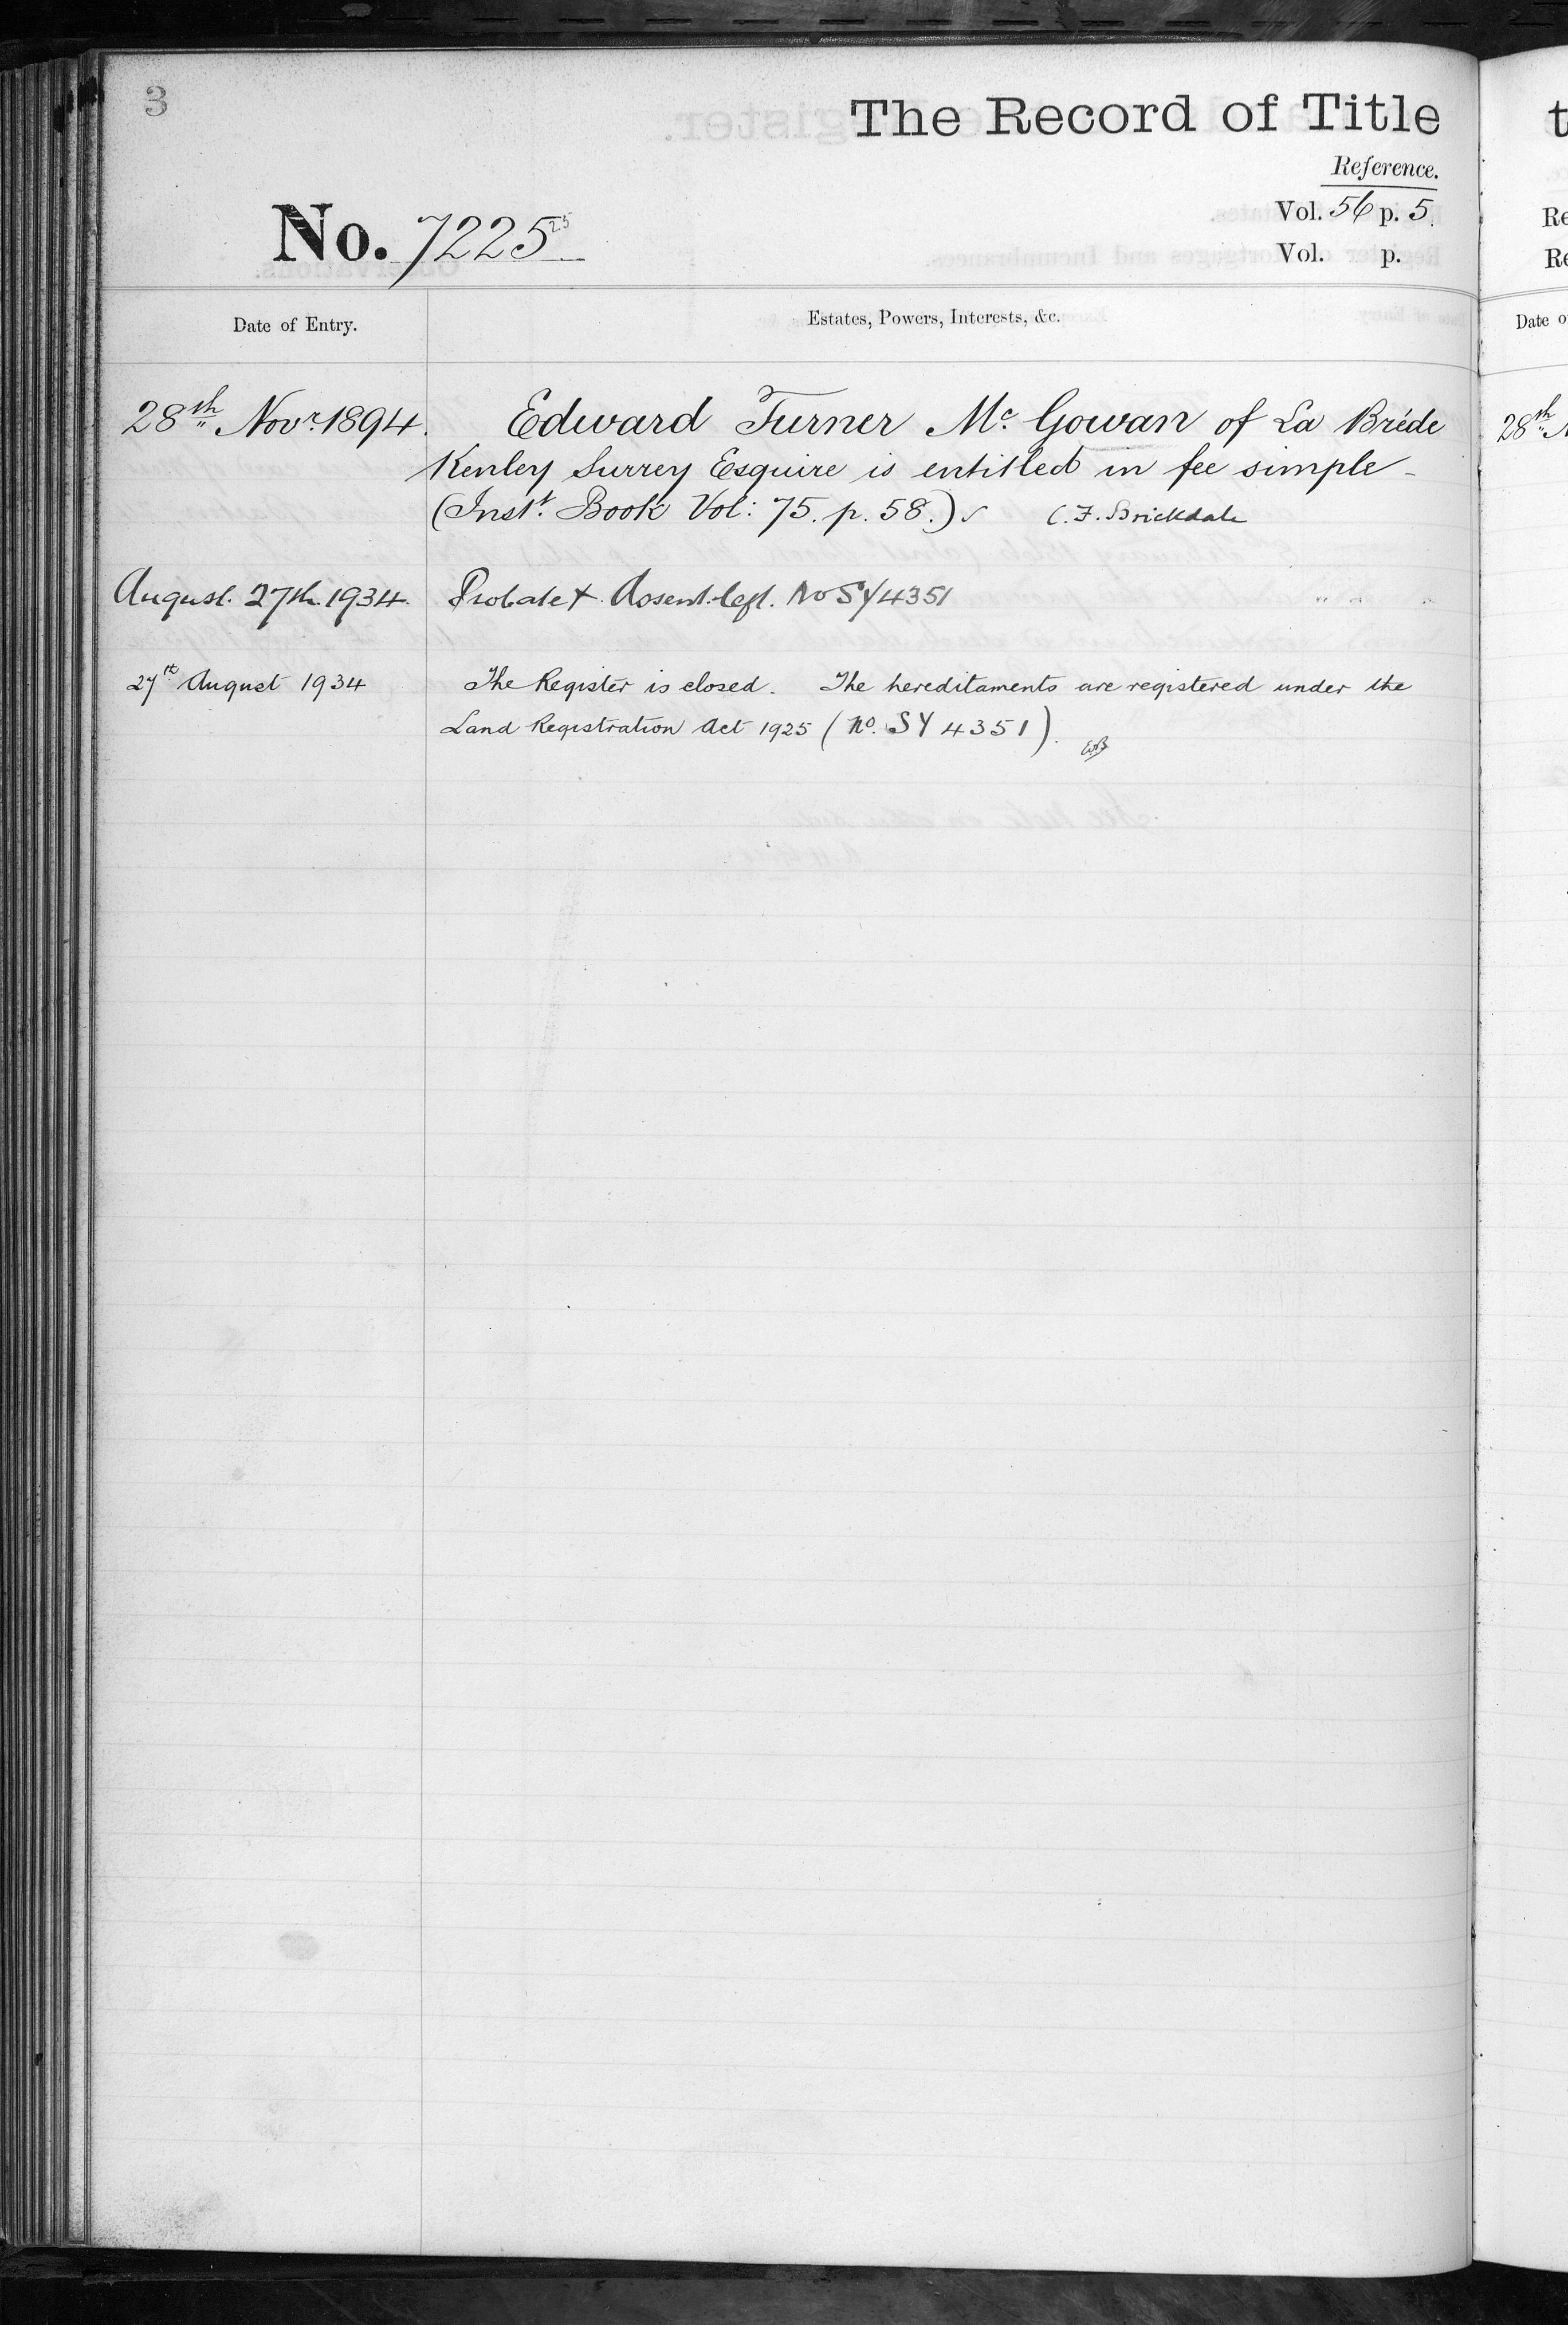 3
The Record of Title
Reference.
Vol. 56 p. 5.
No. 7225 25
Vol. p.
Date of Entry.
Estates, Powers, Interests, &c.
28th Novr. 1894. Edward Turner Mc Gowan of La Bréde
Kenley Surrey Esquire is entitled in fee simple -
(Inst. Book Vol: 75. p. 58.) C. F. Brickdale
August. 27th. 1934. Probate + Assent. left. No SY4351
27th August 1934 The Register is closed. The hereditaments are registered under the
Land Registration Act 1925 (No. SY 4351).
t
Re
Re
Date o
28th N